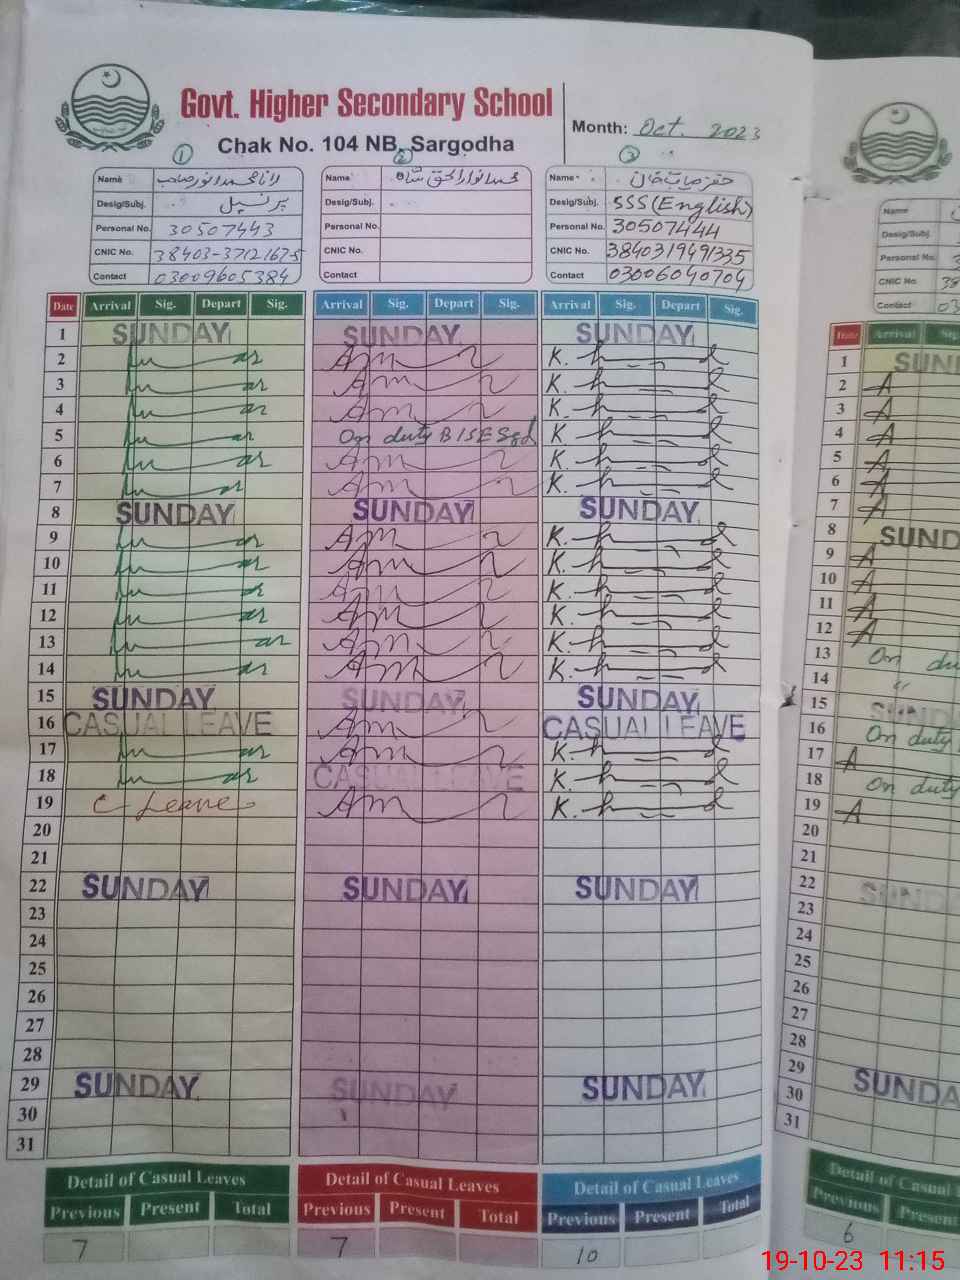 Govt. Higher Secondary School
Chak No. 104 NB, Sargodha
Month: Oct. 2023
1 2 3
Name رانا محمد انور صاحب
Desig/Subj. پرنسپل
Personal No. 30507443
CNIC No. 38403-3712167-5
Contact 03009605384
Name محمد انوار الحق شاہ
Desig/Subj.
Personal No.
CNIC No.
Contact
Name خضر حیات خان
Desig/Subj. SSS (English)
Personal No. 30507444
CNIC No. 3840319491335
Contact 03006040704
Name
Desig/Subj.
Personal No.
CNIC No. 38
Contact 03
Date Arrival Sig. Depart Sig. Arrival Sig. Depart Sig. Arrival Sig. Depart Sig.
1 SUNDAY SUNDAY SUNDAY
2 Am K.
3 Am K.
4 Am K.
5 On duty BISE Sgd K.
6 Am K.
7 Am K.
8 SUNDAY SUNDAY SUNDAY
9 Am K.
10 Am K.
11 Am K.
12 Am K.
13 Am K.
14 Am K.
15 SUNDAY SUNDAY SUNDAY
16 CASUAL LEAVE Am CASUAL LEAVE
17 Am K.
18 CASUAL LEAVE K.
19 C-Leave Am K.
20
21
22 SUNDAY SUNDAY SUNDAY
23
24
25
26
27
28
29 SUNDAY SUNDAY SUNDAY
30
31
Detail of Casual Leaves Detail of Casual Leaves Detail of Casual Leaves
Previous Present Total Previous Present Total Previous Present Total
7 7 10
Date Arrival Sig
1 SUND
2 A
3 A
4 A
5 A
6 A
7 A
8 SUND
9 A
10 A
11 A
12 A
13 On du
14 "
15 SUND
16 On duty
17 A
18 On duty
19 A
20
21
22 SUND
23
24
25
26
27
28
29 SUNDA
30
31
Detail of Casual
Previous Present
6
19-10-23 11:15